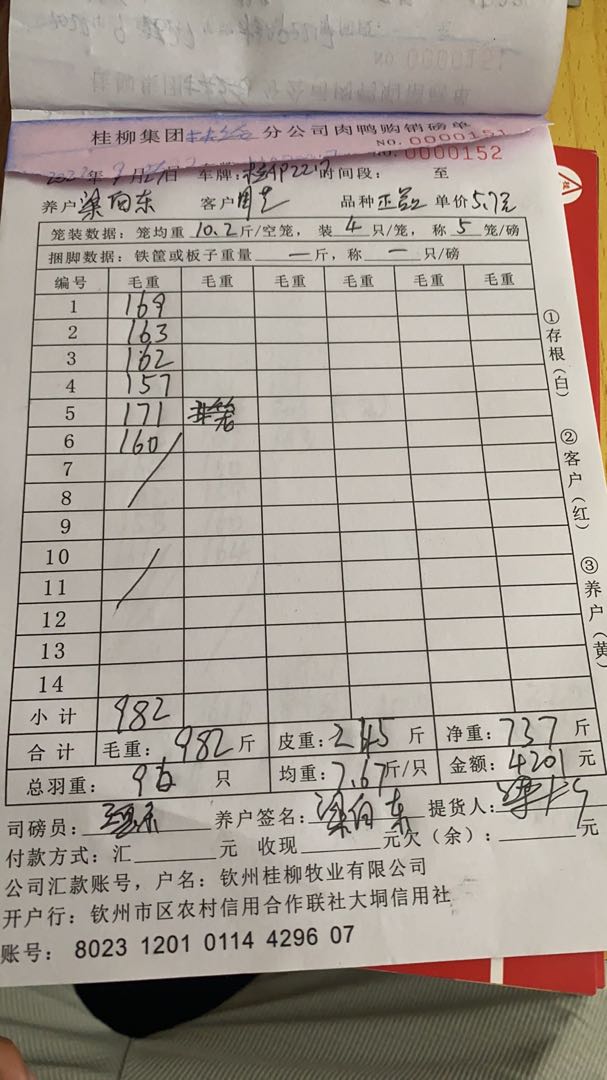 桂柳集团 分公司肉鸭购销磅单
NO. 0000151
NO. 0000152
年 月 日 车牌: 时间段: 至
养户 梁向东 客户 品种 单价 5.7元
笼装数据: 笼均重 10.2 斤/空笼, 装 4 只/笼, 称 5 笼/磅
捆脚数据: 铁筐或板子重量 — 斤, 称 — 只/磅
编号 毛重 毛重 毛重 毛重 毛重 毛重
1 169
2 163
3 162
4 157
5 171
6 160
7
8
9
10
11
12
13
14
小计 982
合计 毛重: 982 斤 皮重: 245 斤 净重: 737 斤
总羽重: 只 均重: 7.67 斤/只 金额: 4201 元
司磅员: 养户签名: 梁向东 提货人:
付款方式: 汇 元 收现 元欠(余): 元
公司汇款账号, 户名: 钦州桂柳牧业有限公司
开户行: 钦州市区农村信用合作联社大垌信用社
账号: 8023 1201 0114 4296 07
①存根(白)
②客户(红)
③养户(黄)